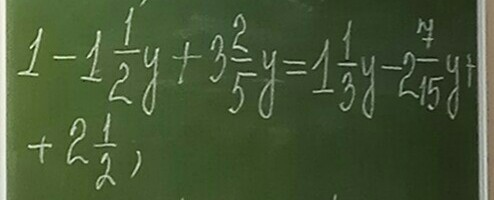 1 - 1 1/2 y + 3 2/5 y = 1 1/3 y - 2 7/15 y +
+ 2 1/2,